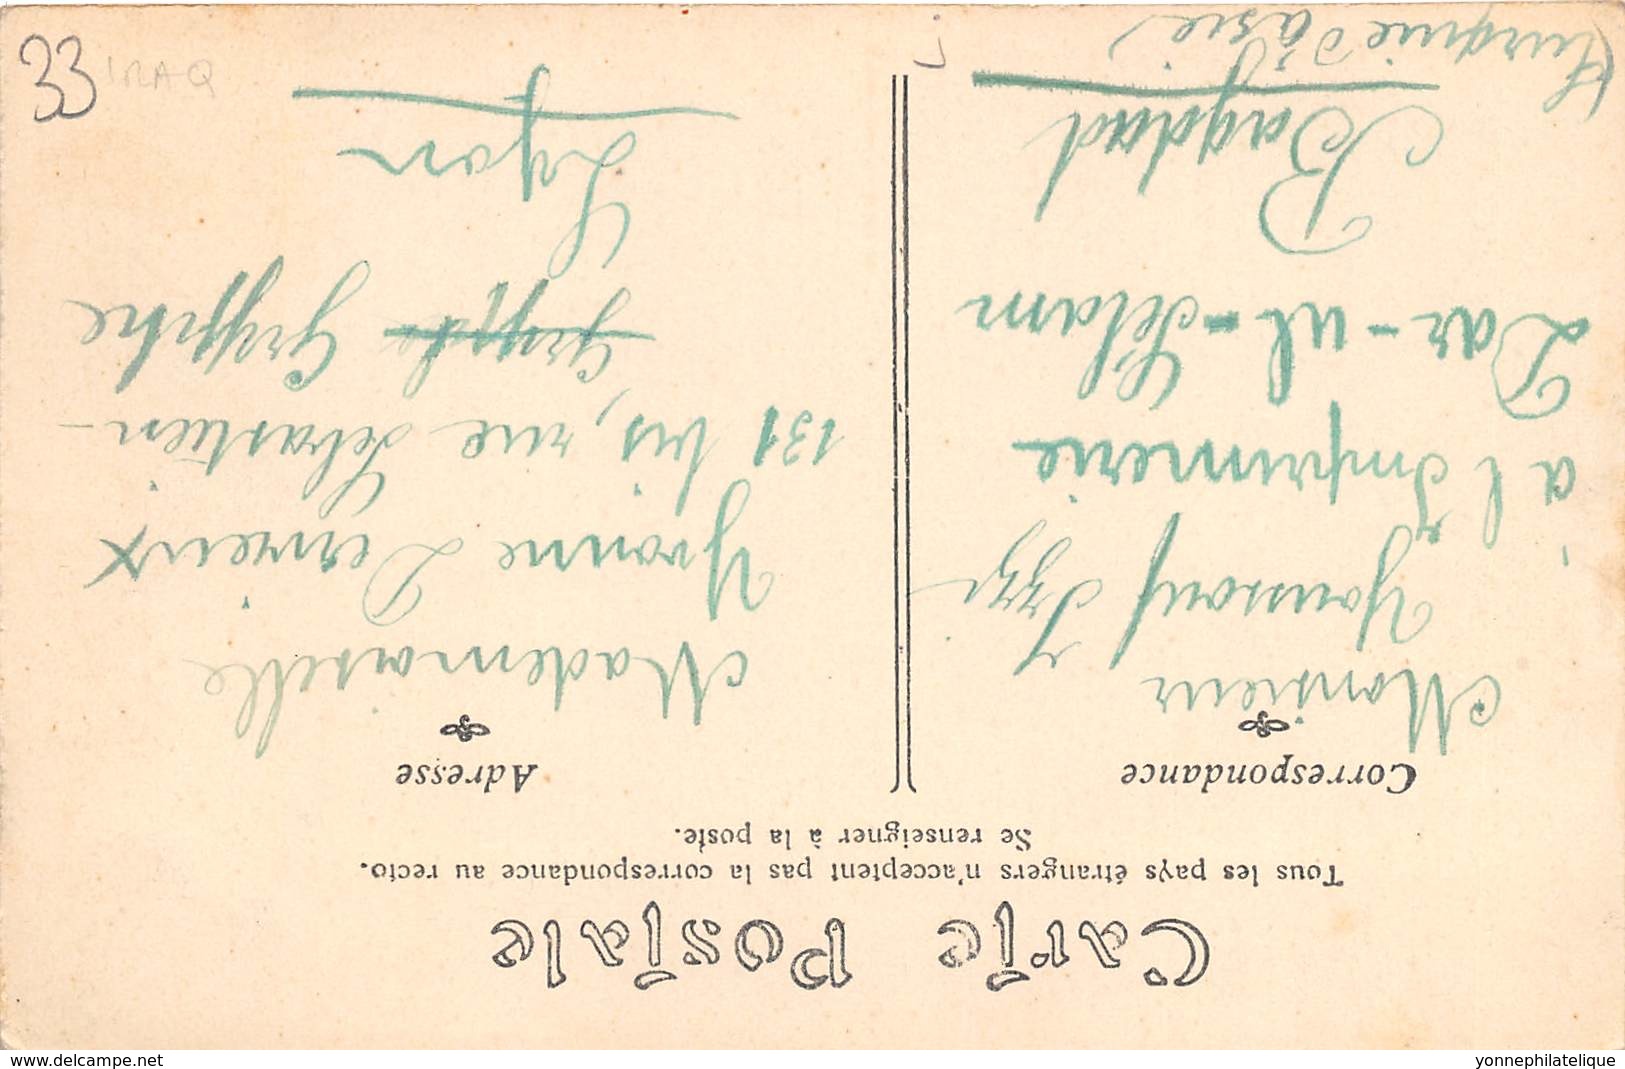 Carte Postale
Tous les pays étrangers n'acceptent pas la correspondance au recto.
Se renseigner à la poste.
Correspondance
Monsieur
Youssouf Izzi
à l'Imprimerie
Dar-ul-Selam
Bagdad
(Turquie d'Asie)
Adresse
Mademoiselle
Yvonne Derrieux
131 bis, rue Sébastien-
Gryphe Gryphe
Lyon
33
IRAQ
delcampe.net
yonnephilatelique